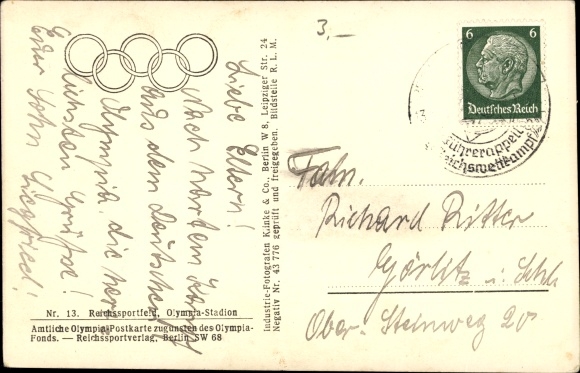 Liebe Eltern!
Nach hartem Kampf
aus dem Deutschen
Olympia, die
lichsten Grüße!
Euer Sohn Siegfried!
Nr. 13. Reichssportfeld, Olympia-Stadion
Amtliche Olympia-Postkarte zugunsten des Olympia-
Fonds. — Reichssportverlag, Berlin SW 68
Industrie-Fotografen Klinke & Co., Berlin W 8, Leipziger Str. 24
Negativ Nr. 43 776 geprüft und freigegeben. Bildstelle R. L. M.
3,—
6 6
Deutsches Reich
Führerappell
Reichswettkampf
Fam.
Richard Ritter
Görlitz i. Schl.
Ober-Steinweg 20